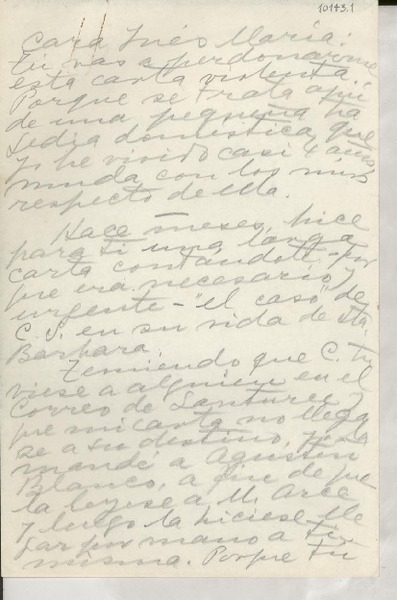 10143.1
Cara Inés María:
Tú vas a perdonarme
esta carta violenta.
Porque se trata aquí
de una pequeña tra
gedia doméstica que
yo he vivido casi 4 años
muda con los míos
respecto de ella.
Hace meses, hice
para ti una larga
carta contándote - por
que era necesario y
urgente - "el caso" de
C. S. en su vida de Sta
Bárbara.
Temiendo que C. tu
viese a alguien en el
Correo de Santurce y
que mi carta no llega
se a su destino, yo la
mandé a Agustín
Blanco, a fin de que
la leyese a M. Arce
y luego la hiciese lle
gar por mano a ti
misma. Porque tú